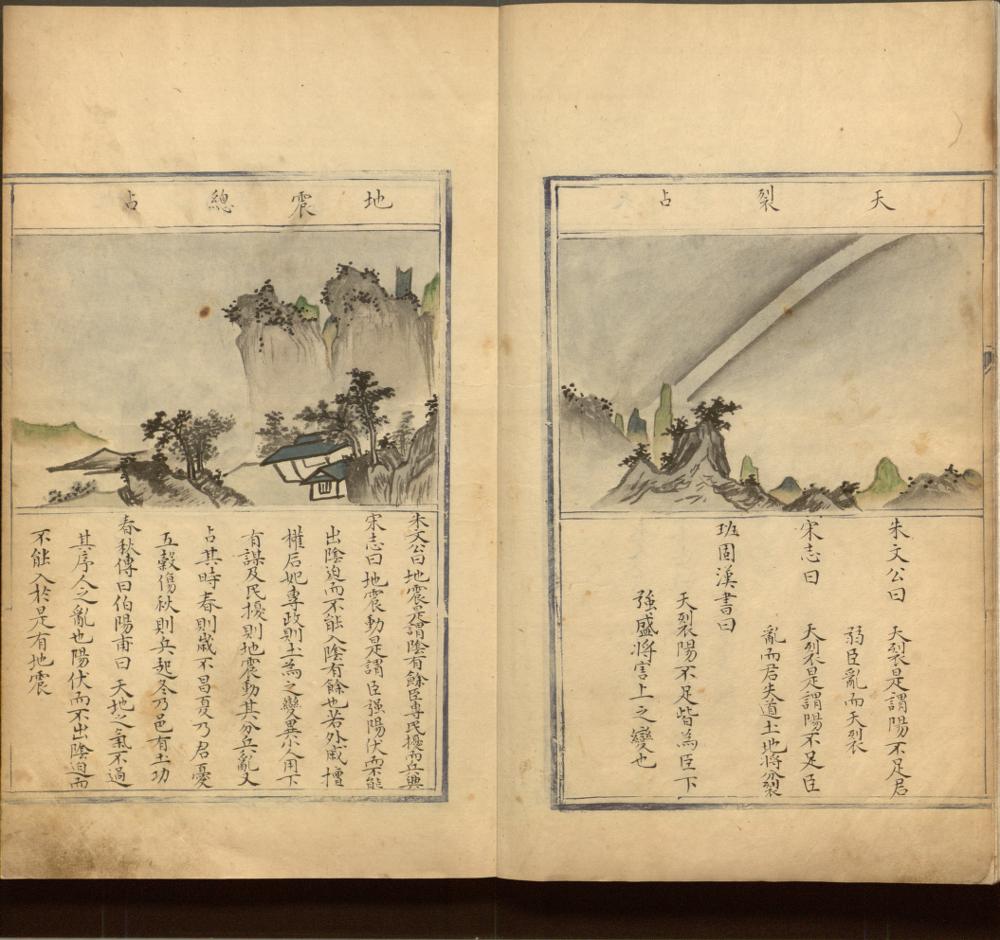 天裂占
朱文公曰　天裂是謂陽不足君
弱臣亂而天裂
宋志曰　天裂是謂陽不足臣
亂而君失道土地將分裂
班固漢書曰
天裂陽不足皆為臣下
強盛將害上之變也
地震總占
朱文公曰地震是謂陰有餘臣專民擾而兵興
宋志曰地震動是謂臣強陽伏而不能
出陰迫而不能入陰有餘也若外戚擅
權后妃專政則土為之變異小人用下
有謀及民擾則地震動其分兵亂又
占其時春則歲不昌夏乃君憂
五穀傷秋則兵起冬乃邑有土功
春秋傳曰伯陽甫曰天地之氣不過
其序人之亂也陽伏而不出陰迫而
不能入於是有地震